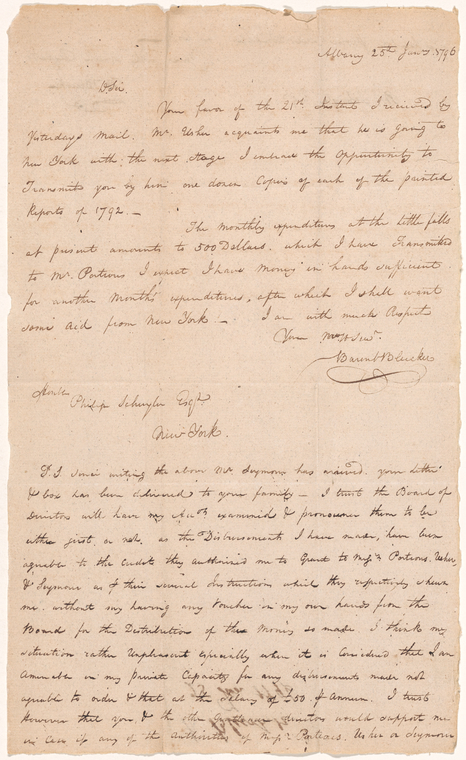 Albany 25th Jany. 1796
D. Sir
Your favor of the 21st Instant I received by
Yesterdays Mail. Mr. Usher acquaints me that he is going to
New York with the next Stage I embrace the Opportunity to
Transmit you by him one dozen Copies of each of the printed
Reports of 1792. —
The monthly expenditures at the little falls
at present amounts to 500 Dollars, which I have Transmitted
to Mr. Porteous I expect I have Money in hands sufficient
for another Months expenditures, after which I shall want
some aid from New York. — I am with much Respect
Your Mo. H Servt.
Barent Bleecker
Honble
Philip Schuyler Esqr.
New York.
P.S. Since writing the above Mr. Seymour has arrived. your letter
& box has been delivered to your family — I trust the Board of
Directors will have my Accots examined & pronounce them to be
either just or not, as the Disbursements I have made, have been
agreable to the Credits they authorised me to Grant to Messrs Porteous, Usher,
& Seymour as of their several Instructions which they respectively shewn
me. without my having any Voucher in my own hands from the
Board for the Distribution of the Monies so made I think my
situation rather Unpleasant especially when it is Considered that I am
Amenable in my private Capacity for any disbursements made not
agreable to order & that at the salary of £50 Annum. I trust
However that you & the other directors would support me
in Case if any of the authorities of Messrs Porteous, Usher or Seymour